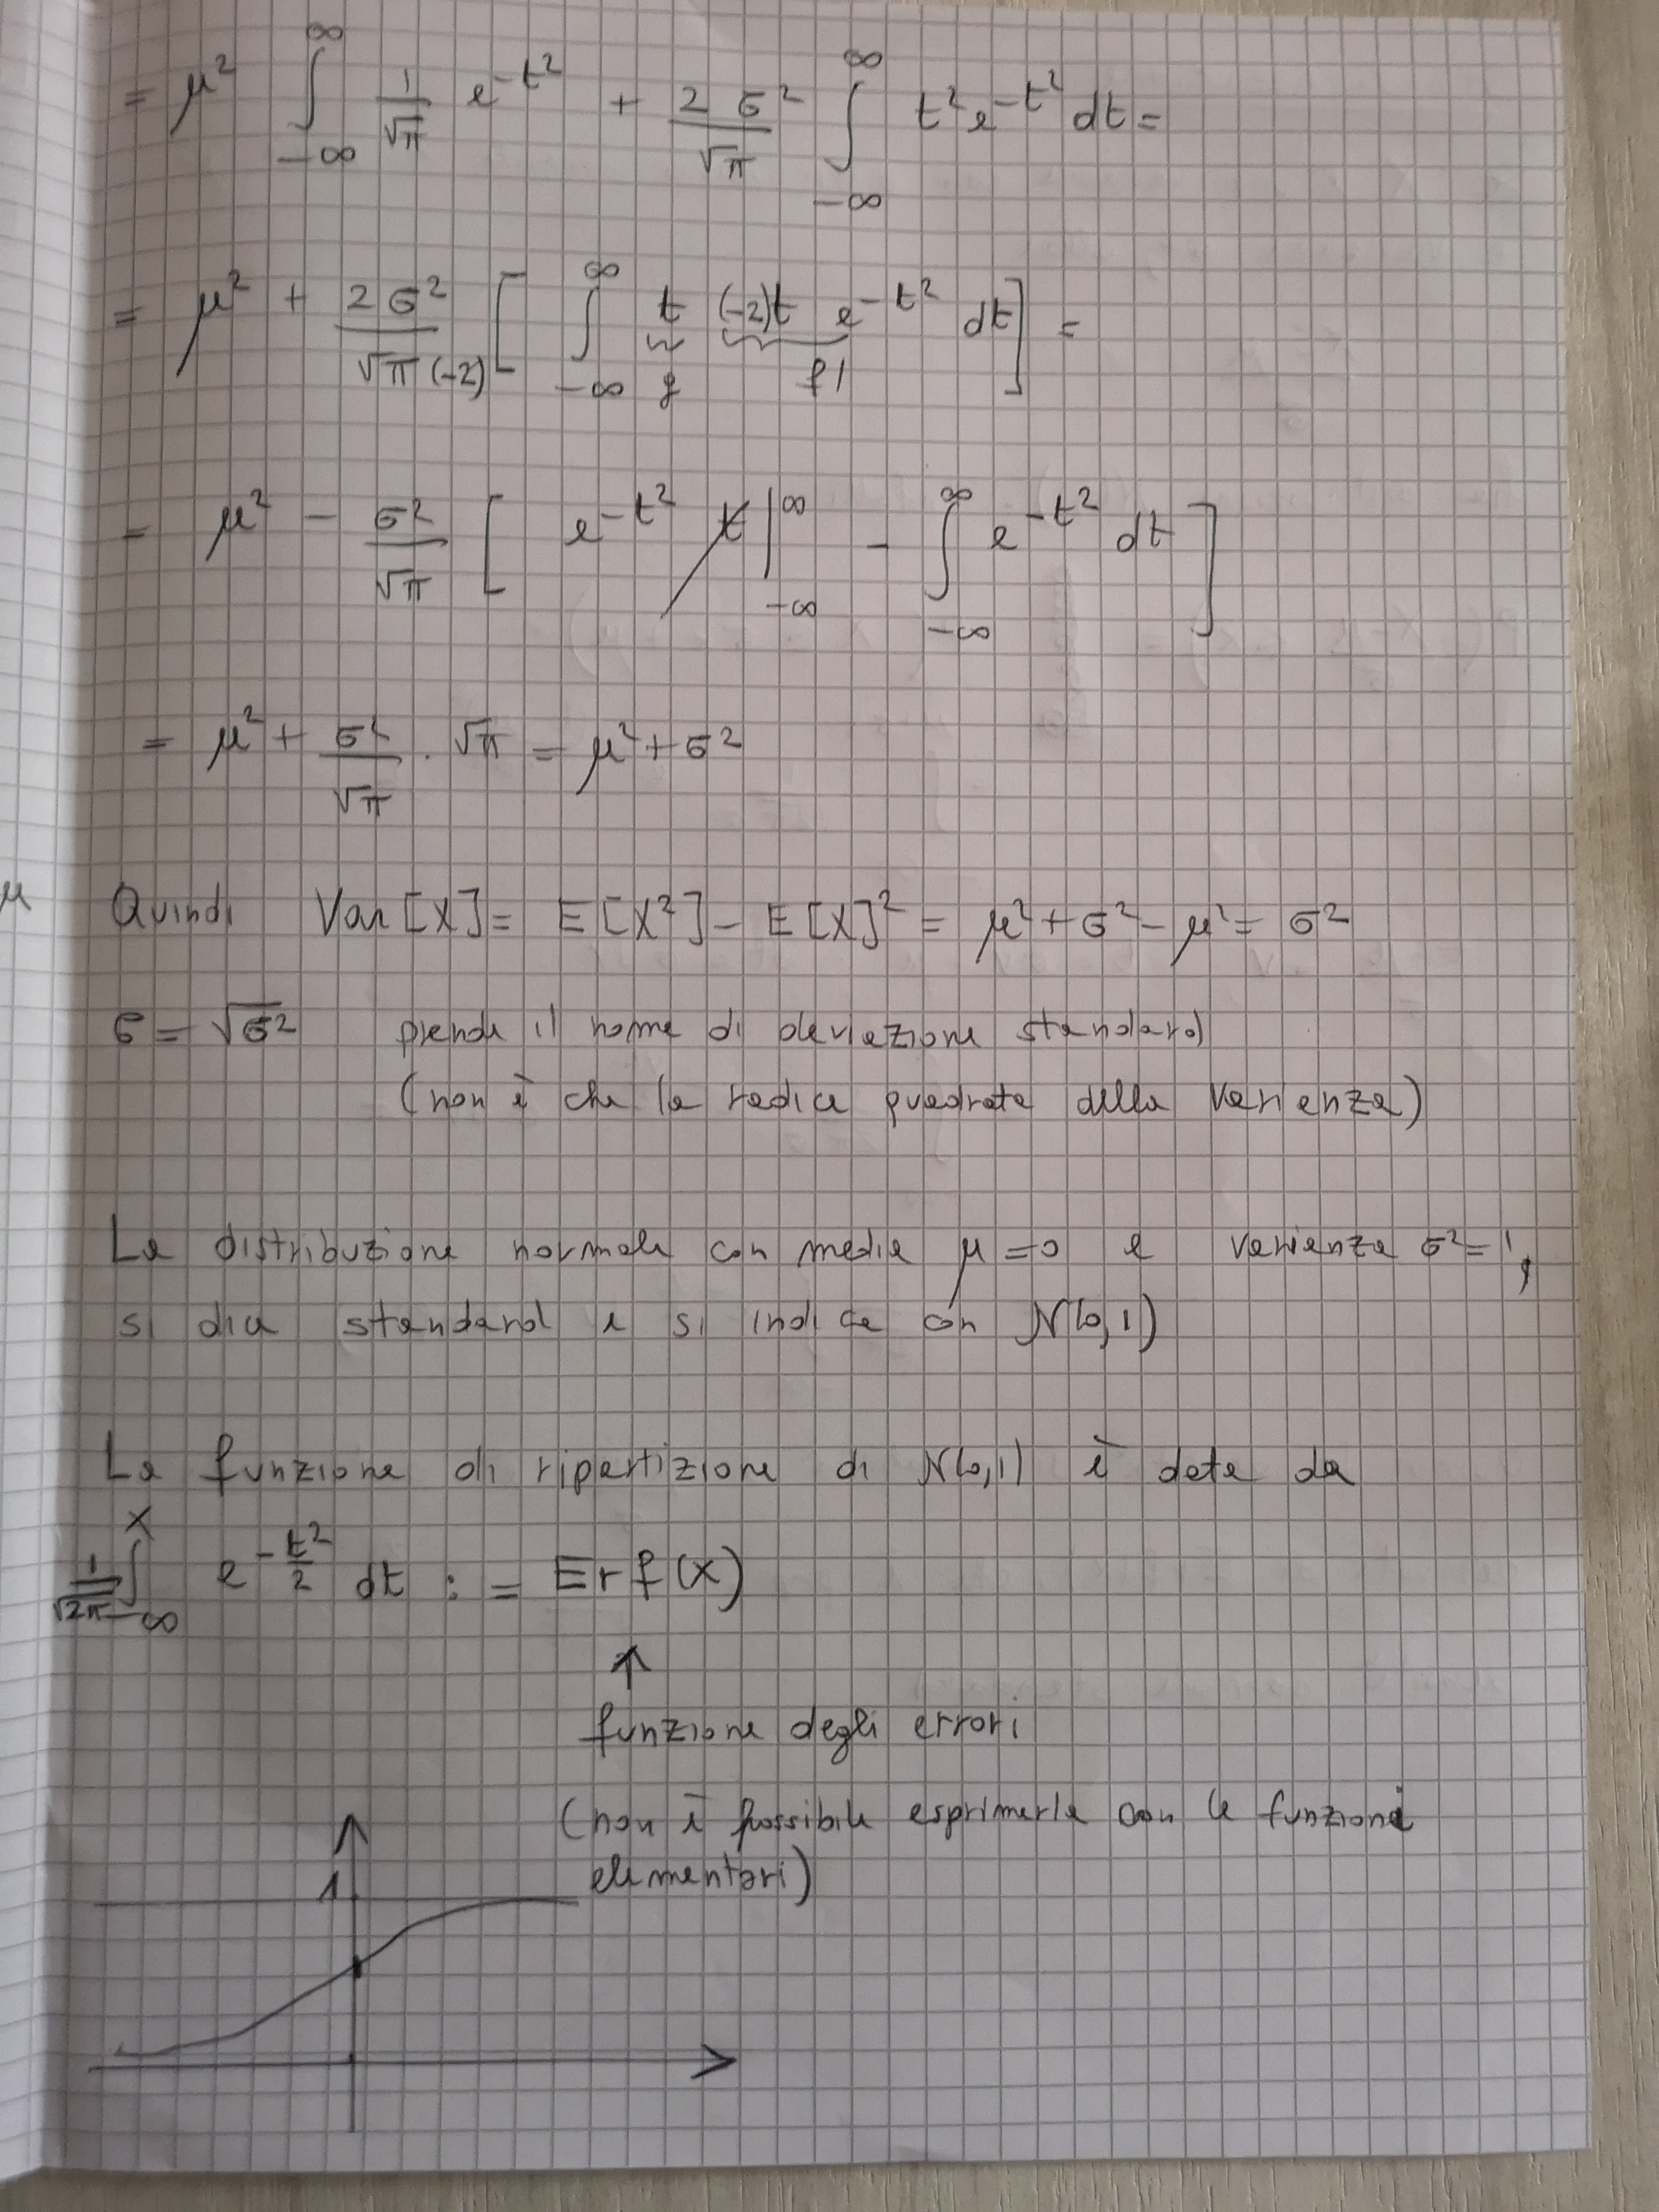 = μ² ∫_{-∞}^{∞} 1/√π e^{-t²} + 2σ²/√π ∫_{-∞}^{∞} t² e^{-t²} dt =
= μ² + 2σ²/(√π (-2)) [ ∫_{-∞}^{∞} t (-2)t e^{-t²} dt ] =
g f'
= μ² - σ²/√π [ e^{-t²} t |_{-∞}^{∞} - ∫_{-∞}^{∞} e^{-t²} dt ]
= μ² + σ²/√π · √π = μ² + σ²
μ
Quindi Var [X] = E[X²] - E[X]² = μ² + σ² - μ² = σ²
σ = √σ² prende il nome di deviazione standard
(non è che la radice quadrata della varianza)
La distribuzione normale con media μ = 0 e varianza σ² = 1,
si dice standard e si indica con N(0,1)
La funzione di ripartizione di N(0,1) è data da
1/√2π ∫_{-∞}^{x} e^{-t²/2} dt := Erf(x)
↑
funzione degli errori
(non è possibile esprimerla con le funzioni
elementari)
1